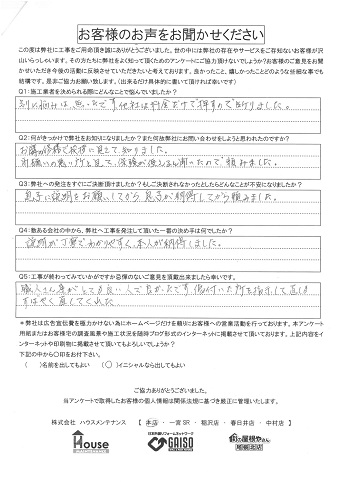 お客様のお声をお聞かせください
この度は弊社に工事をご用命頂き誠にありがとうございました。世の中には弊社の存在やサービスをご存知ないお客様が沢
山いらっしゃいます。その方たちに弊社をよく知って頂くためのアンケートにご協力頂けないでしょうか?お客様のご意見をお聞
かせいただき今後の活動に反映させていただきたいと考えております。良かったこと、嬉しかったことどのような些細な事でも
結構です。是非ご協力お願い致します。(出来るだけ具体的に書いて頂ければ幸いです)
Q1:施工業者を決められる際にどんなことで悩んでいましたか?
Q2:何がきっかけで弊社をお知りになりましたか?また何故弊社にお問い合わせをしようと思われたのですか?
Q3:弊社への発注をすぐにご決断頂けましたか?もしご決断されなかったとしたらどんなことが不安になりましたか?
息子に説明をお願いしてから 息子が納得してから頼みました。
Q4:数ある会社の中から、弊社へ工事を発注して頂いた一番の決め手は何ですか?
説明が丁寧でわかりやすく、本人が納得しました。
Q5:工事が終わってみていかがですか忌憚のないご意見を頂戴出来ましたら幸いです。
職人さん達がとても良い人で良かったです。傷付いた所を指示して直し
すばやく直してくれた
*弊社は広告宣伝費を極力かけない為にホームページだけを頼りにお客様への営業活動を行っております。本アンケート
用紙またはお客様宅の調査風景や施工状況を随時ブログ形式のインターネットに掲載させて頂いております。上記内容をイ
ンターネットや印刷物に掲載させて頂いてもよろしいでしょうか?
下記の中から〇印をお付下さい。
( )名前を出してもよい ( )イニシャルなら出してもよい
ご協力ありがとうございました。
当アンケートで取得したお客様の個人情報は関係法規に基づき厳正に管理いたします。
株式会社 ハウスメンテナンス 【 本店 ・ 一宮SR ・ 稲沢店 ・ 春日井店 ・ 中村店 】
House
GAISO
街の屋根やさん